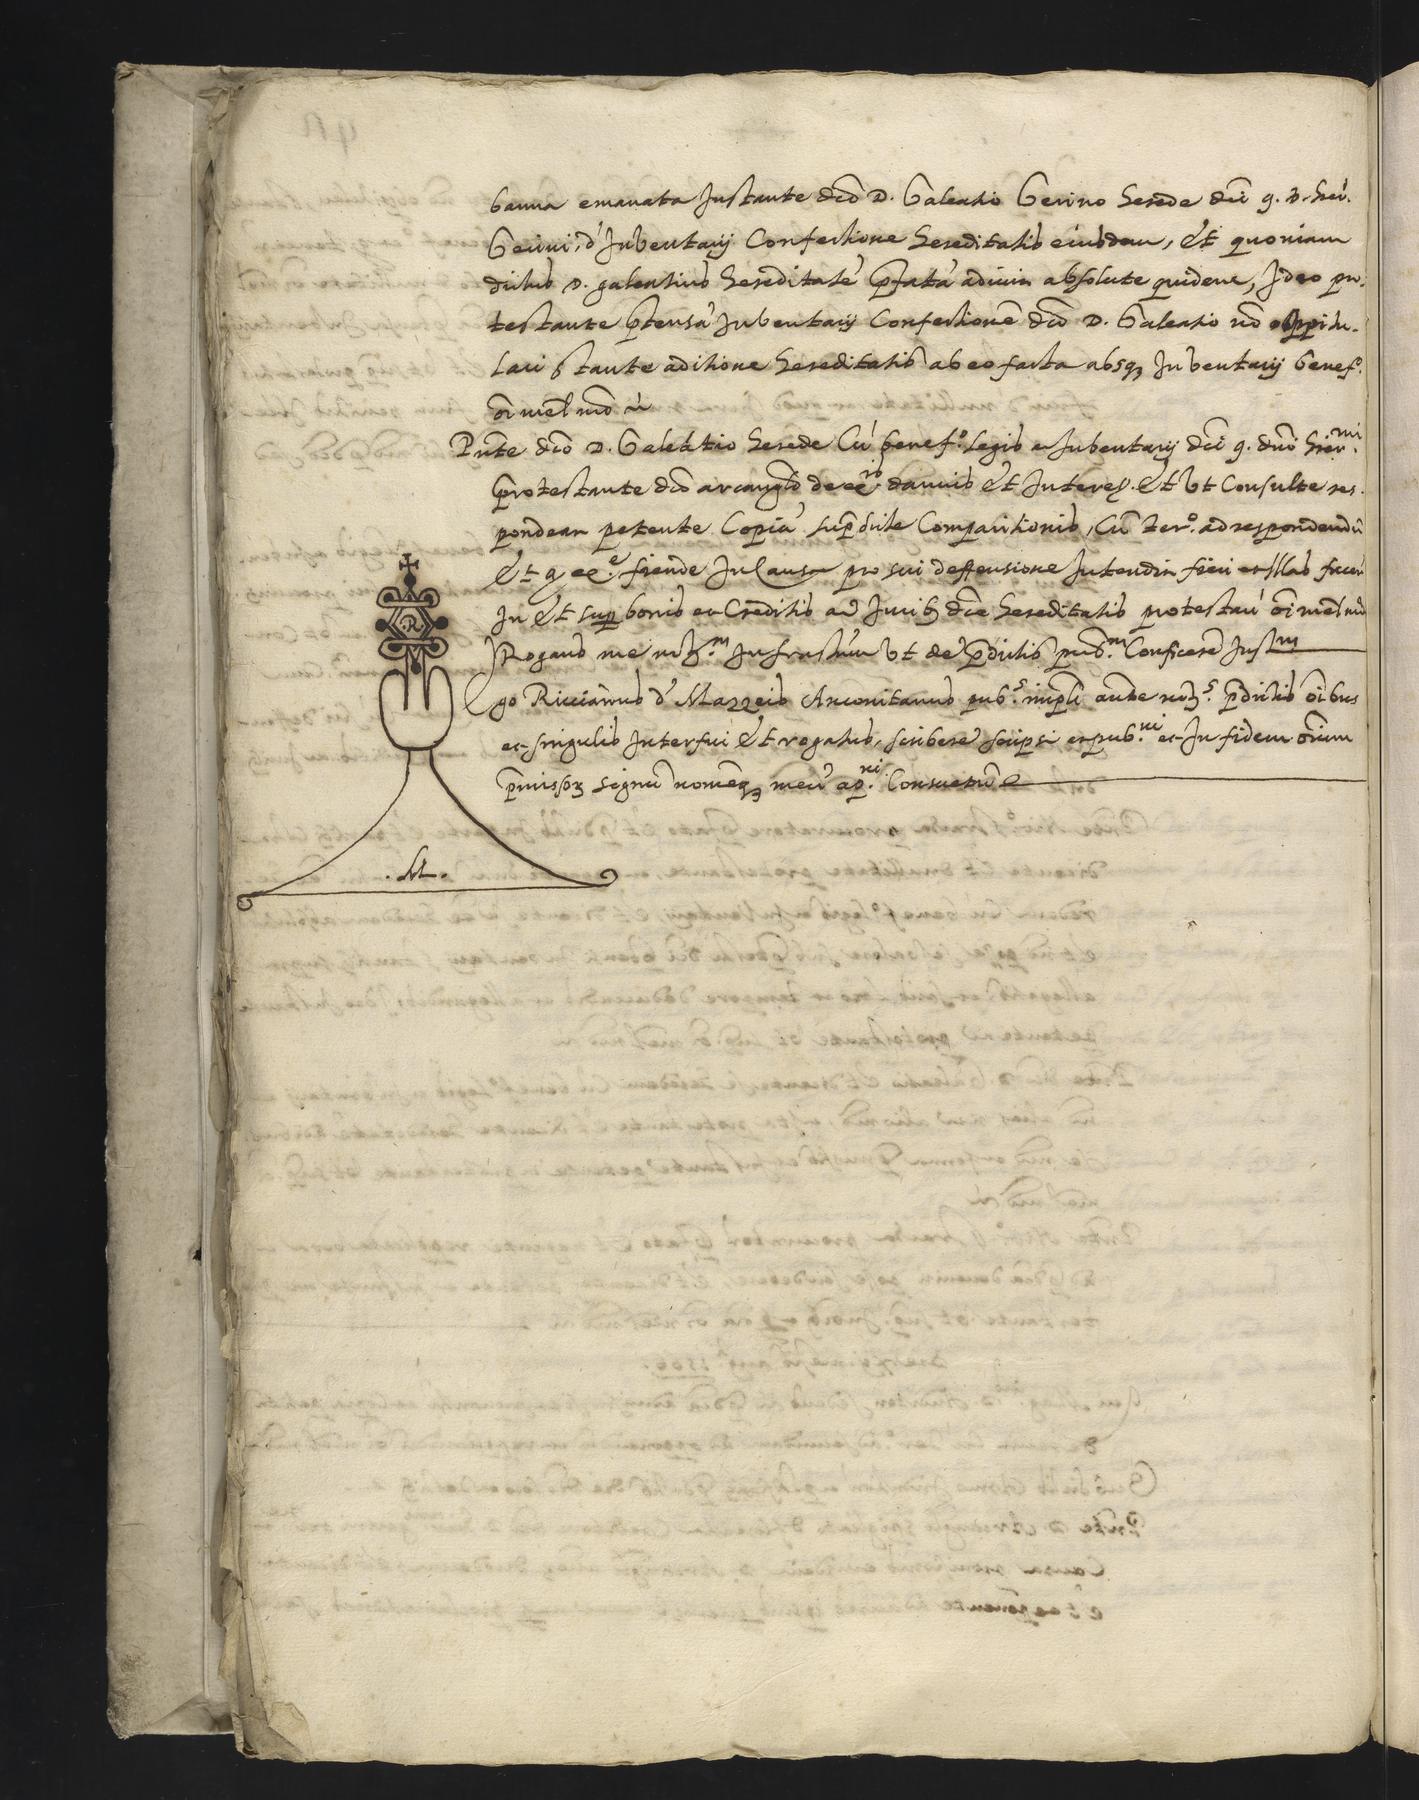 banna emanata Instante dco D. Galeatio Gerino herede dci q. D. hier.
Gerini, d' Inventarij Confectione hereditatis eiusdem, Et quoniam
dictus D. galeatius hereditate pfata adivit absolute quidem, Ideo pro-
testante ptensa Inventarij Confectione dco D. Galeatio no oppitu-
lari stante aditione hereditatis ab eo facta absq3 Inventarij benef.o
oi mel mo
Pnte dco D. Galeatio herede Cu benef.o legis et Inventarij dci q. dni hier.mi
protestante dco arcangelo de damnis Et Interes. Et Ut Consulte res-
pondeat petente Copia supdicte Comparitionis, Cu ter.o ad respondendu
Et q fiende In Causa pro sui deffensione Intendit fieri et
In Et sup bonis et Creditis ac dce hereditatis protestari oi mel mo
Rogans me not.m Infrascrm Ut de pdictis pub.m Conficere Inst.m
Ego Ricciarius d' Mazzeis Anconitanus pub.s impli aucte not.s pdictis oibus
et singulis Interfui Et rogatus, scribere scripsi et pub.ui et In fidem oium
pmissor3 signu nomeq3 meu ap.ui Consuetu
.R.
.M.